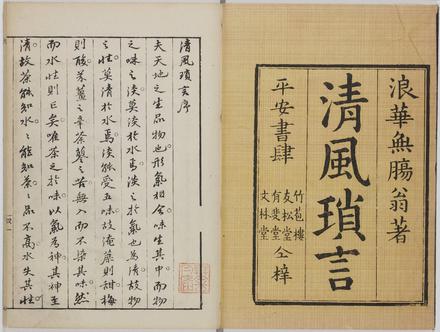 浪華無腸翁著
清風瑣言
平安書肆
竹苞樓
友松堂
有斐堂
文林堂
仝梓
清風瑣言序
夫天地之生品物也形氣相合味生其中而物
之味之淡莫淡於水焉淡之於水為清故物
之性莫清於水焉淡能受五味故淹則甜梅
則酸茱薑之辛茶蓼之苦無入而不染其味然
而水性則已矣唯茶之於味以氣為神其神至
清故茶能知水〻能知茶〻品不高水失其性